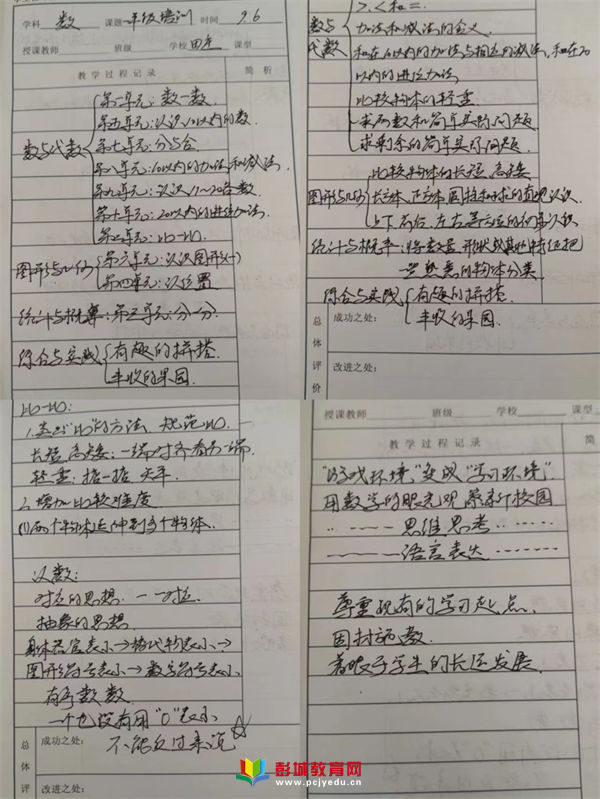 学科 数 课题 一年级培训 时间 9.6
授课教师 班级 学校 课型
教学过程记录 简析
数与代数
第一单元:数一数.
第五单元:认识10以内的数.
第七单元:分与合
第八单元:10以内的加法和减法.
第九单元:认识11~20各数.
第十单元:20以内的进位加法.
第二单元:比一比.
图形与几何
第六单元:认识图形(一)
第四单元:认位置
统计与概率:第三单元:分一分.
综合与实践
有趣的拼搭
丰收的果园.
>、<和=.
数与代数
加法和减法的含义
和在10以内的加法与相应的减法,和在20
以内的进位加法
比较物体的轻重
求两数和的简单实际问题
求剩余的简单实际问题.
图形与几何
比较物体的长短、高矮
长方体、正方体、圆柱和球的直观认识.
上下、前后、左右等方位的初步认识
统计与概率:将数量、形状或其他特征把
一些熟悉的物体分类.
综合与实践
有趣的拼搭.
丰收的果园.
总体评价
成功之处:
改进之处:
比一比:
1.类比"比"的方法、规范比.
长短、高矮:一端对齐看另一端.
轻重:掂一掂 天平.
2.增加比较难度
(1)两个物体延伸到多个物体.
认数:
对应的思想.一一对应.
抽象的思想
身体器官表示→替代物表示→
图形符号表示→数字符号表示
有序数数.
一个也没有用"0"表示
不能反过来说☆
总体评
成功之处:
改进之处:
授课教师 班级 学校 课型
教学过程记录 简
"游戏环境"变成"学习环境".
用数学的眼光观察新校园
思维思考
语言表达
尊重现有的学习起点.
因材施教.
着眼于学生的长远发展.
彭城教育网
www.pcjyedu.cn